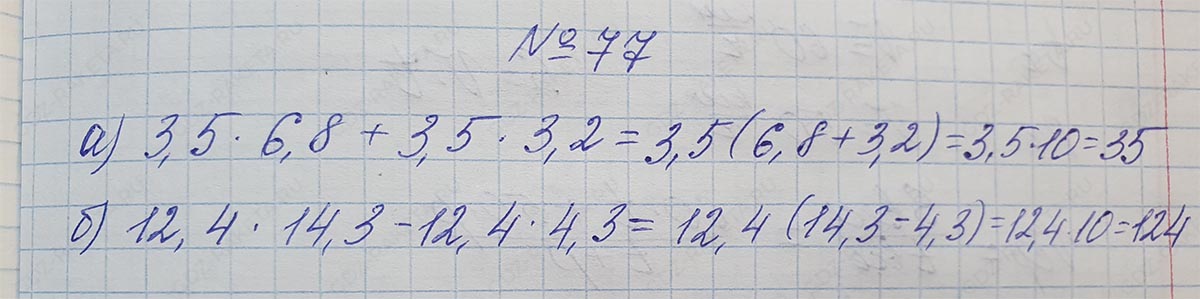 № 77
а) 3,5 · 6,8 + 3,5 · 3,2 = 3,5 (6,8 + 3,2) = 3,5 · 10 = 35
б) 12,4 · 14,3 - 12,4 · 4,3 = 12,4 (14,3 - 4,3) = 12,4 · 10 = 124